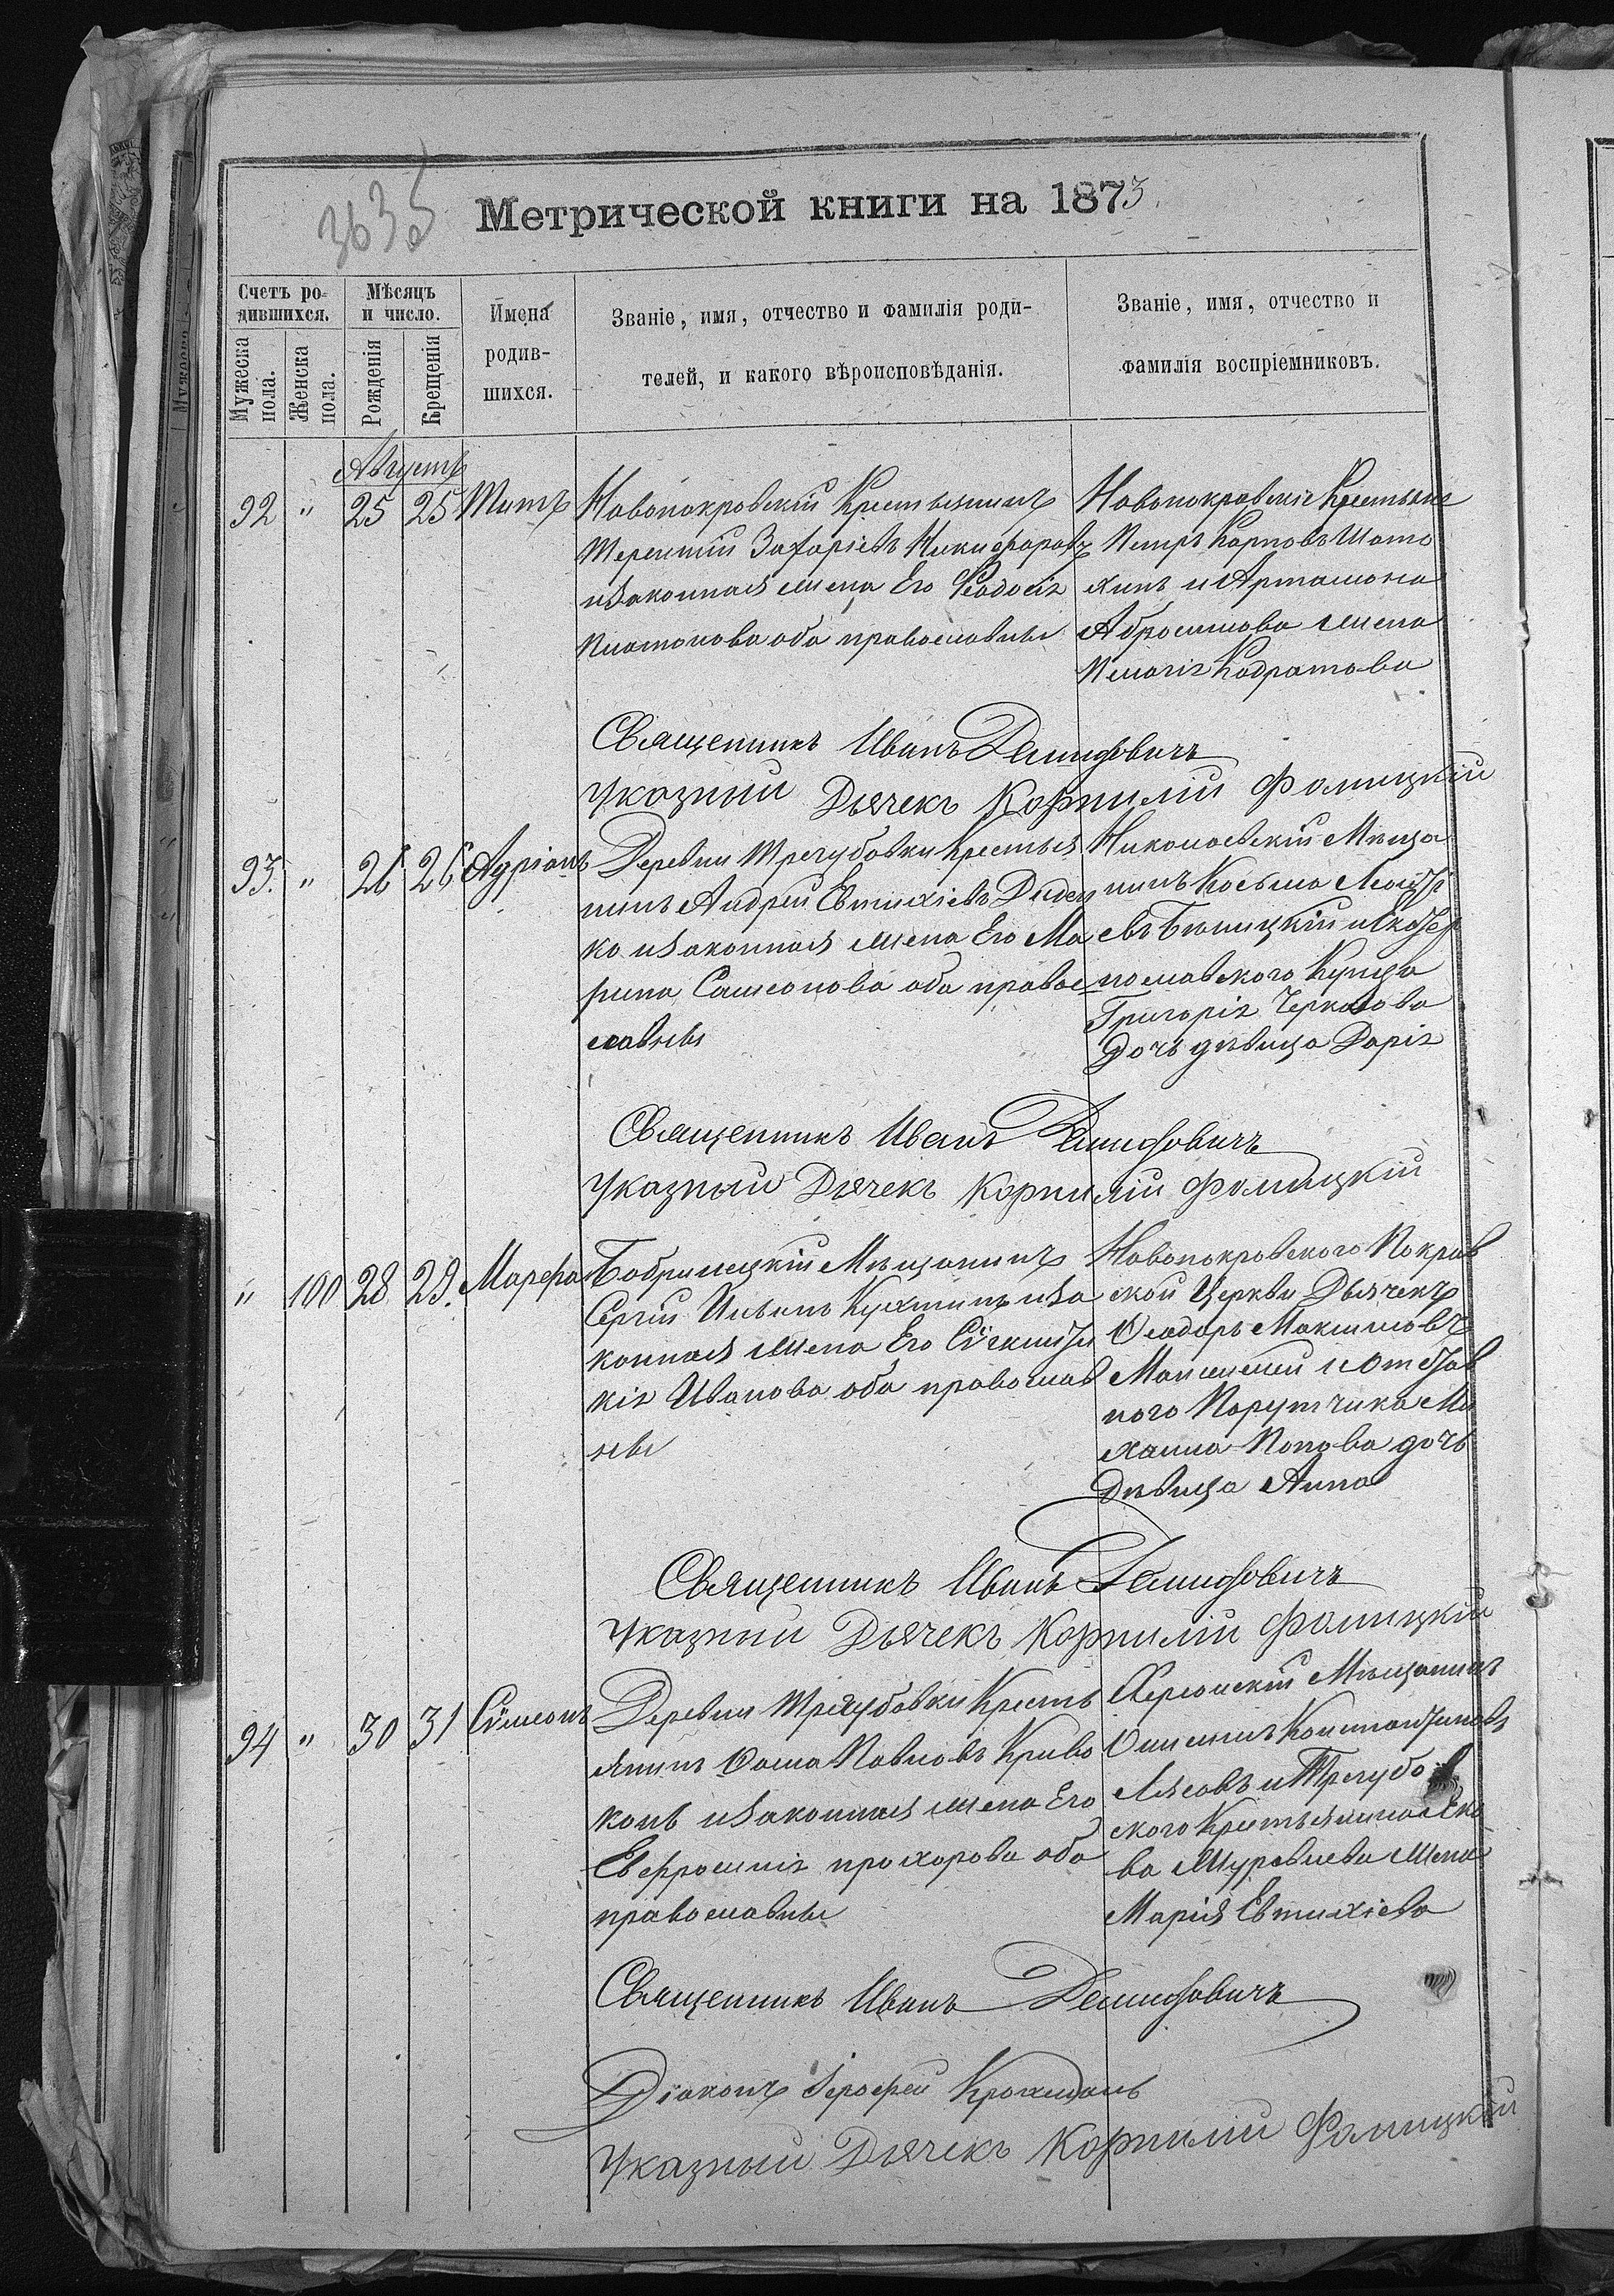 3635
Метрической книги на 1873.
Счетъ ро-
дившихся.
Мужеска пола.
Женска пола.
Мѣсяцъ
и число.
Рожденія
Крещенія
Имена
родив-
шихся.
Званіе, имя, отчество и фамилія роди-
телей, и какого вѣроисповѣданія.
Званіе, имя, отчество и
фамилія воспріемниковъ.
Августъ
92 " 25 25 Титъ
Новопокровскій Крестьянинъ
Терентій Захаріевъ Никифоровъ
и законная жена Его Феодосія
Платонова оба православны
Новопокровскіе Крестьяне
Петръ Карповъ Шато
хинъ и Артамона
Абросимова жена
Пелагія Кодратова
Священникъ Иванъ Демидовичъ
Указный Дьячекъ Корнилій Фолицкій
93. " 26 26 Адріанъ
Деревни Трегубовки Крестья
нинъ Андрей Евтихіевъ Диден
ко и законная жена Его Ма
рина Самсонова оба правос
лавны
Николаевскій Мѣща
нинъ Косьма
евъ и Екатер
нославского Купца
Григорія Черкасова
дочь дѣвица Дарія
Священникъ Иванъ Демидовичъ
Указный Дьячекъ Корнилій Фолицкій
" 100 28 29. Марфа
Бобринецкій Мѣщанинъ
Сергій Ильинъ и за
конная жена Его
кія Иванова оба православ
ны
Новопокровского Покров
ской Церкви Дьячекъ
Феодоръ Максимовъ
и Отстав
ного Порутчика Ми
хаила Попова дочь
Дѣвица Анна
Священникъ Иванъ Демидовичъ
Указный Дьячекъ Корнилій Фолицкій
94 " 30 31 Сімеонъ
Деревни Трегубовки Кресть
янинъ Фома Павловъ Криво
конь и законная жена Его
Евфросинія прохорова оба
православны
Херсонскій Мѣщанинъ
Константиновъ
Лясовъ и Трегубо
ского Крестьянина Яко
ва Журавлева Жена
Марія Евтихіева
Священникъ Иванъ Демидовичъ
Діаконъ Іерофей
Указный Дьячекъ Корнилій Фолицкій